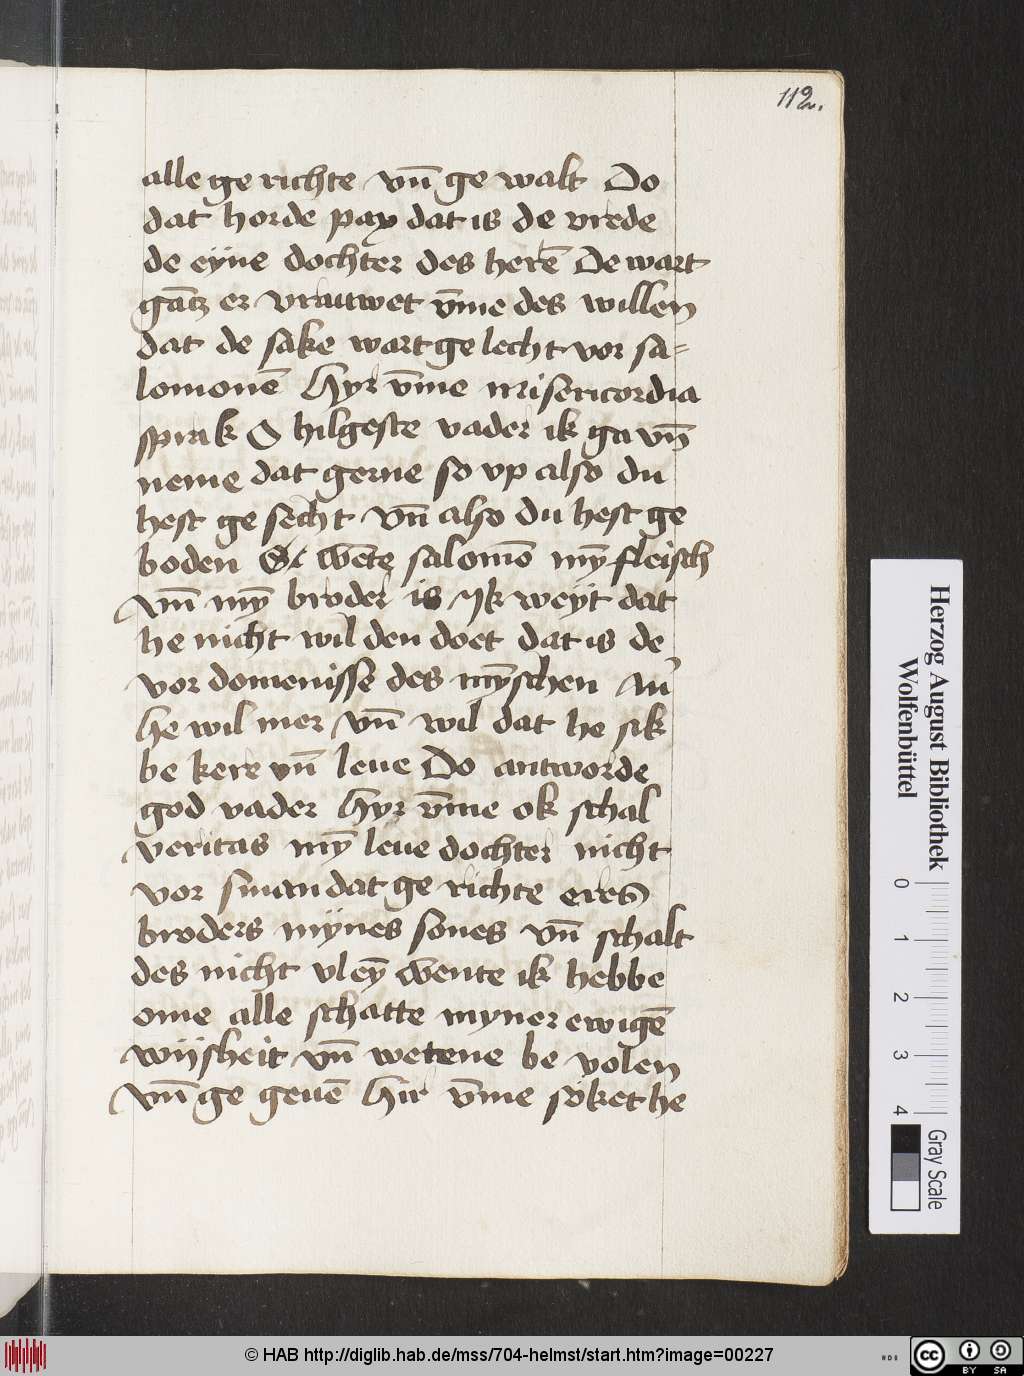 112.
alle ge richte vn̄ ge walt Do
dat horde pax dat is de vrede
de eyne dochter des herē De wart
gātz er vrauwet v̄me des willen
dat de sake wart ge lecht vor sa-
lomonē hyr v̄me misericordia
sprak O hilgeste vader ik ga vn̄
neme dat gerne so vp also du
hest ge secht vn̄ also du hest ge
boden Et wēte salomō mȳ fleisch
vn̄ mȳ broder is yk weyt dat
he nicht wil den doet dat is de
vor domenisse des mȳschen
he wil mer vn̄ wil dat he sik
be kere vn̄ leue Do antworde
god vader hyr v̄me ok schal
veritas mȳ leue dochter nicht
vor sman dat ge richte eres
broders mynes sones vn̄ schalt
des nicht vleȳ wente ik hebbe
ome alle schatte myner ewigē
wijsheit vn̄ wetene be volen
vn̄ ge geuē hir v̄me söket he
Herzog August Bibliothek
Wolfenbüttel
0 1 2 3 4
Gray Scale
© HAB http://diglib.hab.de/mss/704-helmst/start.htm?image=00227
cc BY SA